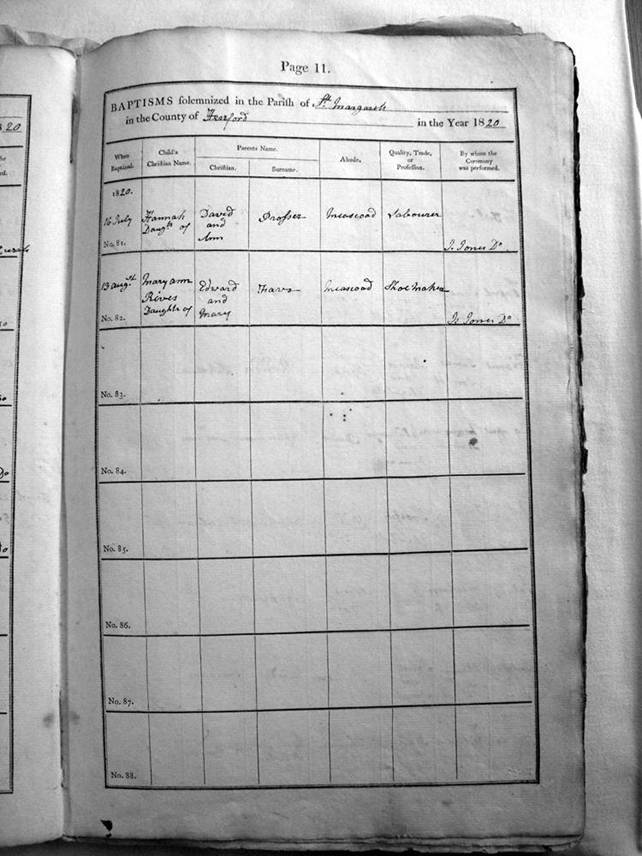 Page 11.
BAPTISMS solemnized in the Parish of St. Margarets
in the County of Hereford in the Year 1820
When Baptized. Child's Christian Name. Parents Name. Abode. Quality, Trade, or Profession. By whom the Ceremony was performed.
Christian. Surname.
1820.
16 July Hannah Daughtr of David and Ann Prosser Labourer
No. 81. J. Jones Do
13 Augst Mary ann Daughtr of Edward and Mary Shoemaker
No. 82. J. Jones Do
No. 83.
No. 84.
No. 85.
No. 86.
No. 87.
No. 88.